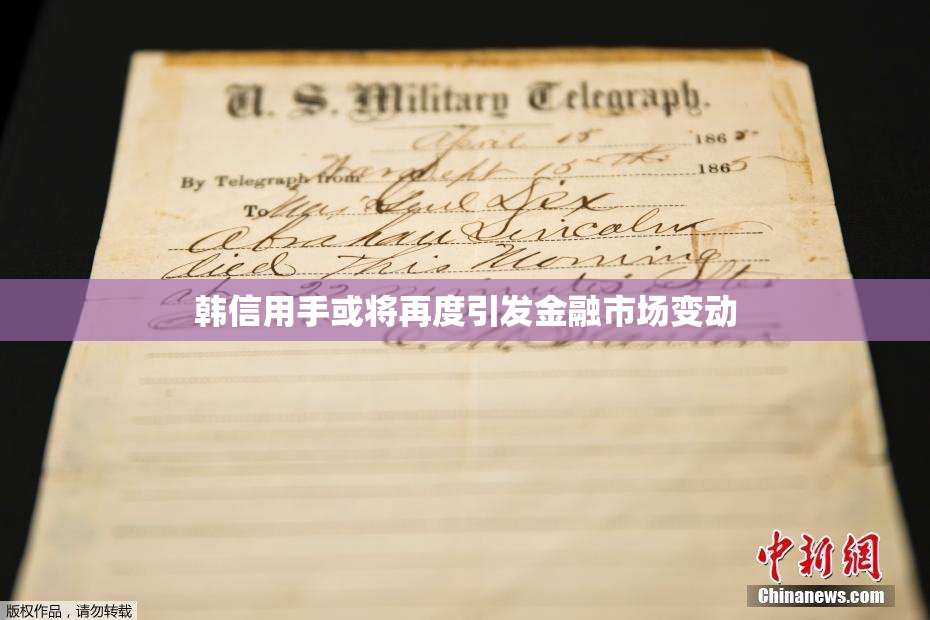 U. S. Military Telegraph.
April 15 1865
By Telegraph from War Dept 15th 1865
To Maj Genl Dix
Abraham Lincoln
died This Morning
at 22 minutes after
韩信用手或将再度引发金融市场变动
中新網
Chinanews.com
版权作品，请勿转载